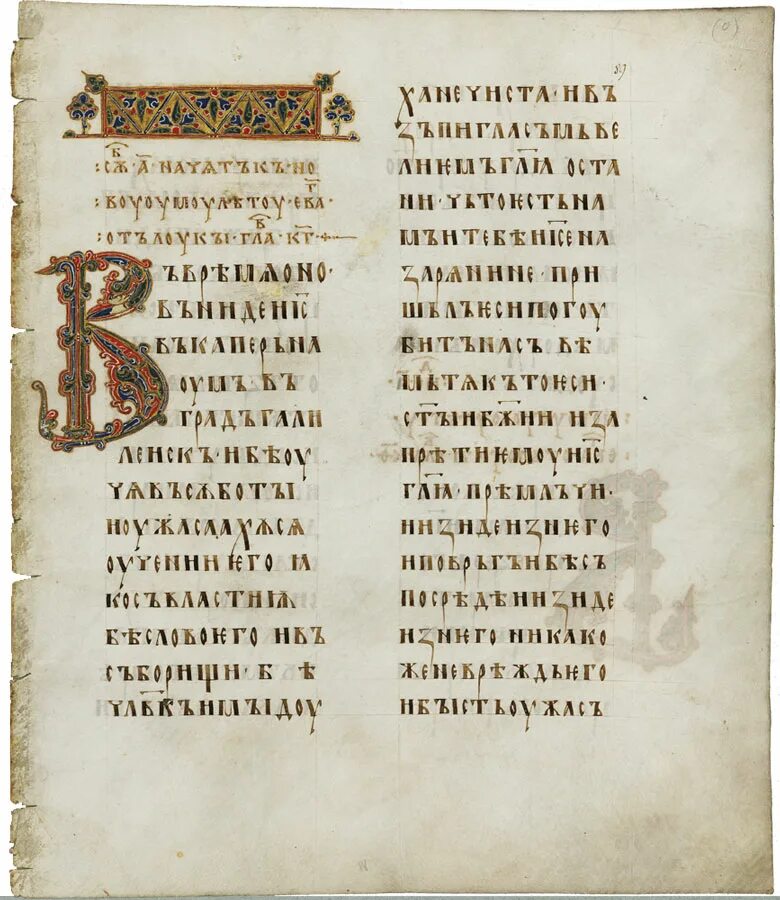 (0)
89
:сѫ҃б · а҃ · начѧтъкъ · но
:воуоумоулѣтоу · ева҃г ·
:отълоукꙑ · гла҃в · кг҃
Въврѣмѧоно ·
въниде и҃с
въкаперьна
оумъ въ
градъгали
леискъ · ибѣоу
чѧвъсѫботꙑ
иоужасаахѫсѧ
оученииѥго ꙗ
косъвластиѭ
бѣсловоѥго ивъ
съборищи · б ѣ
чл҃вкъимꙑідоу
ханечиста · ивъ
зъпигласъмьве
лиѥмъ гл҃ѧ оста
ни · чьтоѥстьна
мъитебѣ и҃сена
зарѧнине · при
шьлъѥсипогоу
битънасъ вѣ
мьтѧкътоѥси ·
ст҃ꙑиб҃жии иза
прѣтиѥмоу и҃с
гл҃ѧ · прѣмлъчи ·
иизидеизнѥго
иповрьгъибѣсъ
посрѣдѣиизиде
изнѥго никако
женеврѣждьѥго
ибꙑстьоужасъ